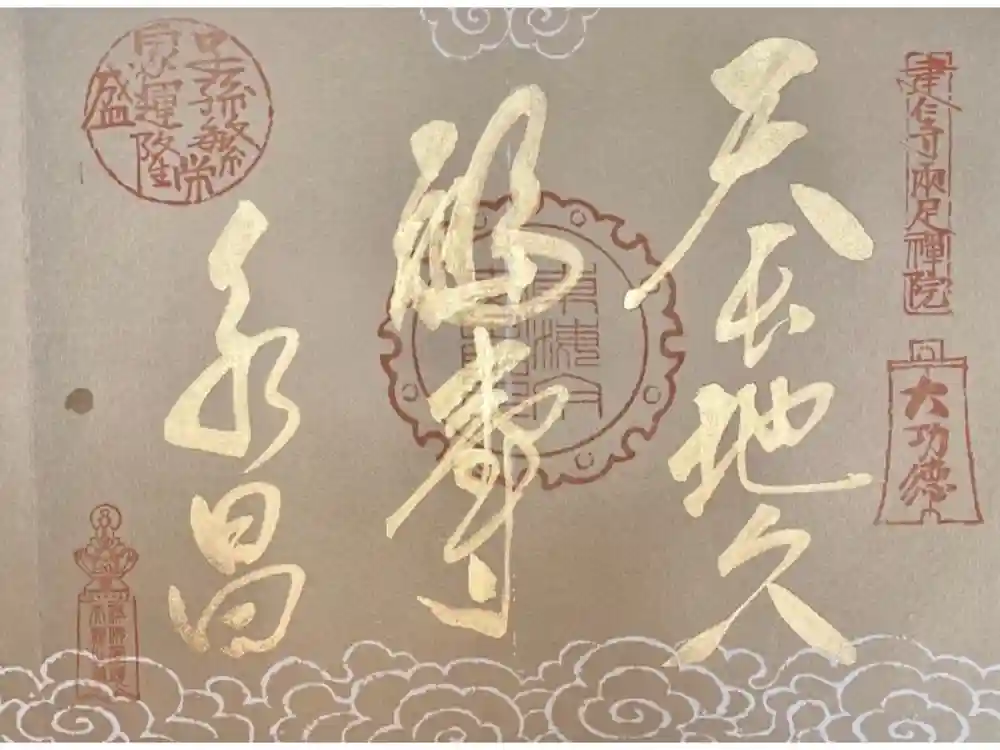 建仁寺両足禅院
大功徳
天長地久
福寿
永昌
子孫繁栄
家運隆
盛